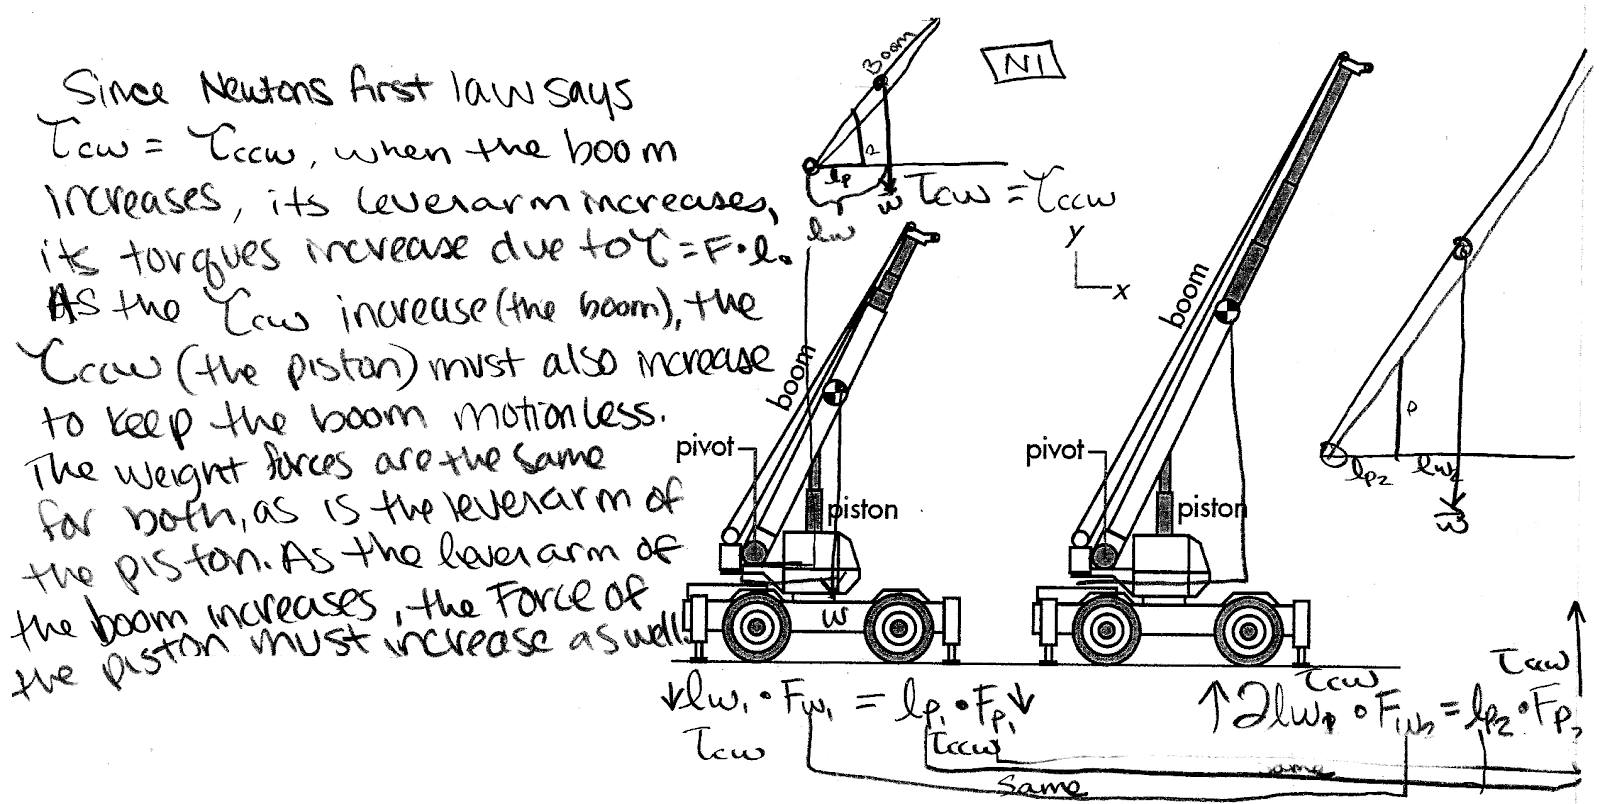 Since Newtons first law says
τcw = τccw, when the boom
increases, its leverarm increases,
its torques increase due to τ=F•l.
As the τcw increase (the boom), the
τccw (the piston) must also increase
to keep the boom motionless.
The weight forces are the same
for both, as is the leverarm of
the piston. As the lever arm of
the boom increases, the Force of
the piston must increase as well.
Boom
lp
lw
w
τcw = τccw
N1
y
x
boom
pivot
piston
w
boom
pivot
piston
p
lp2
lw2
w
↓lw1 • Fw1 = lp1 • Fp1↓
τcw
τccw
τcw
τccw
↑2lw • Fw2 = lp2 • Fp2
same
Same